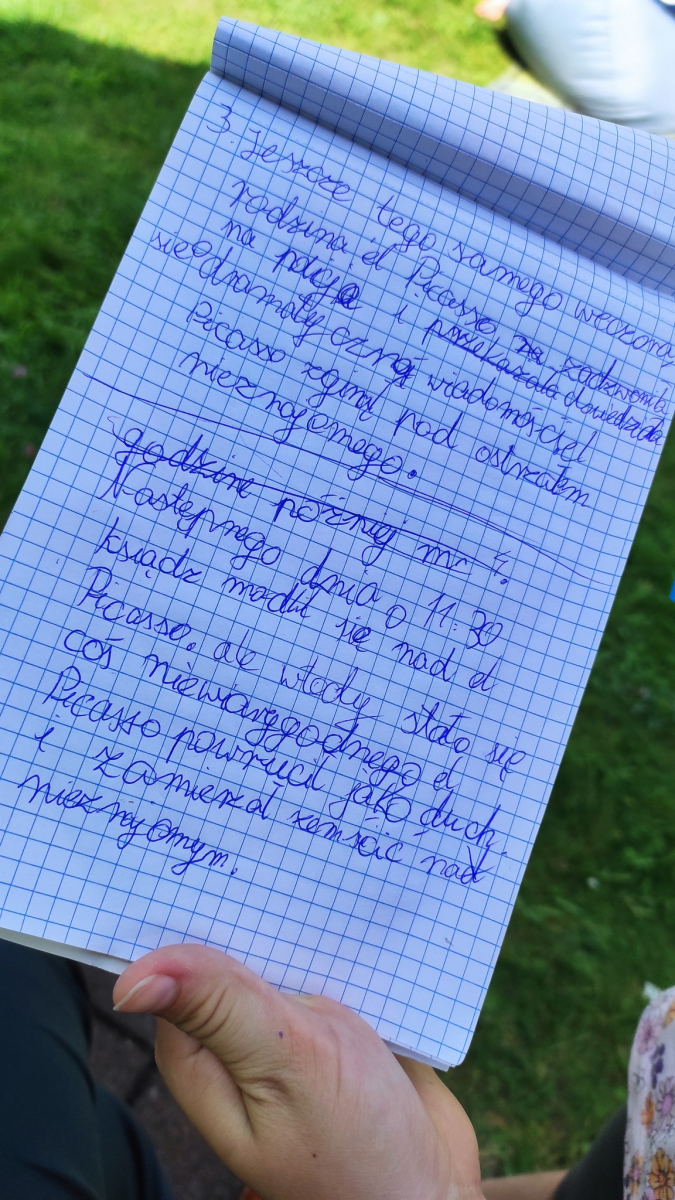 3. Jeszcze tego samego wieczora,
rodzina el Picasso za zadzwoniła
na policję i przekazała dowiedziała
się dramatycznej wiadomości el
Picasso zginął pod ostrzałem
nieznajomego.
godzine później mr 4.
Następnego dnia o 11:30
ksiądz modlił się nad el
Picasso. ale wtedy stało się
coś niewarygodnego el
Picasso powrucił jako duch.
i zamierzał zemścić nad
nieznajomym.